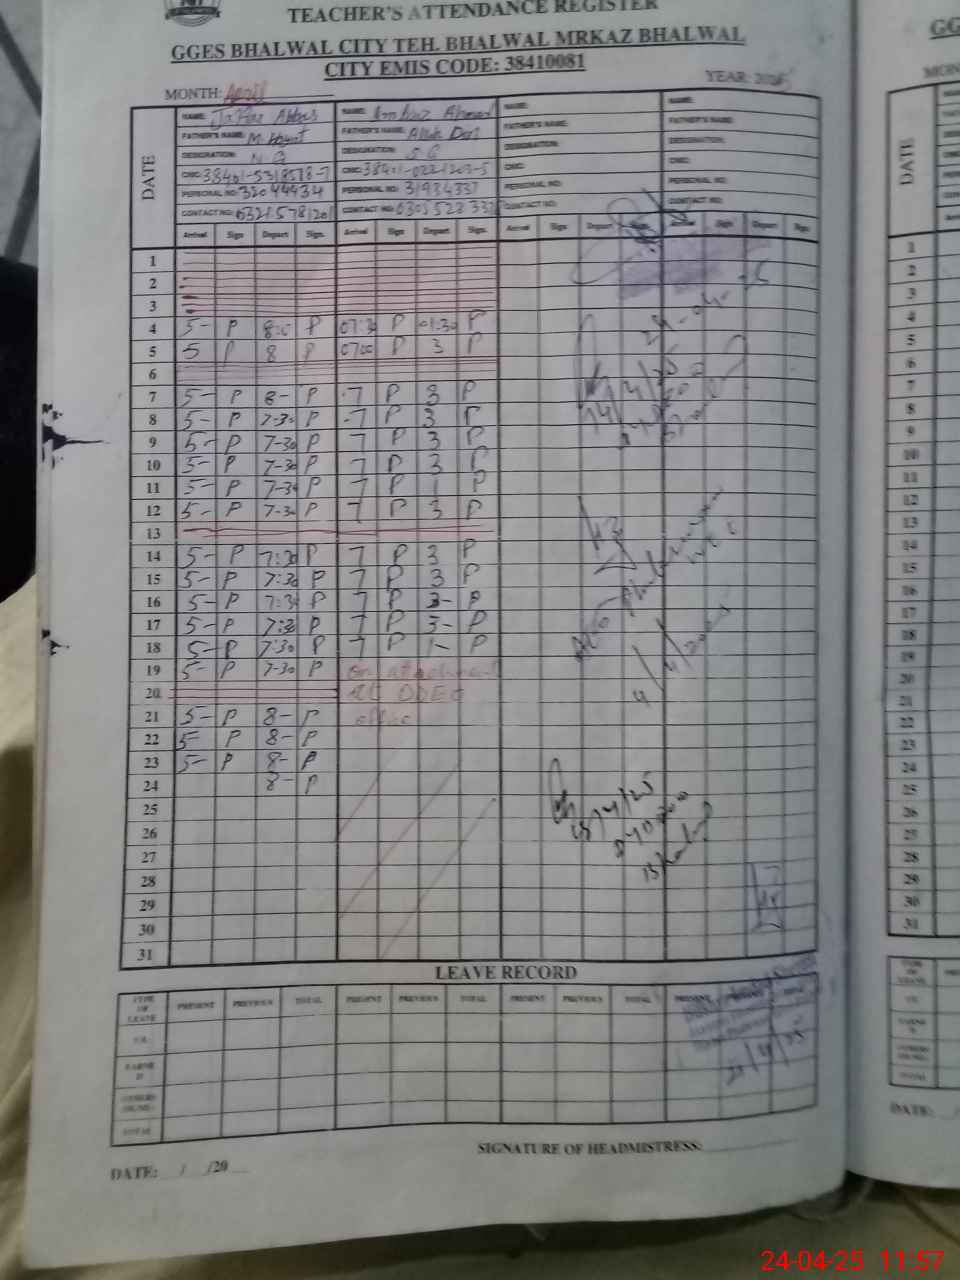 TEACHER'S ATTENDANCE REGISTER
GGES BHALWAL CITY TEH. BHALWAL MRKAZ BHALWAL
CITY EMIS CODE: 38410081
MONTH: April YEAR: 2025
DATE
NAME: Jaffar Abbas NAME: Ahmad NAME: NAME:
FATHER'S NAME: M. Hayat FATHER'S NAME: Allah FATHER'S NAME: FATHER'S NAME:
DESIGNATION: N.Q DESIGNATION: S.G DESIGNATION: DESIGNATION:
CNIC: 38401-5318578-7 CNIC: 38401-0221203-5 CNIC: CNIC:
PERSONAL NO: 32044934 PERSONAL NO: 31934337 PERSONAL NO: PERSONAL NO:
CONTACT NO: 03215781201 CONTACT NO: 0305 528 CONTACT NO: CONTACT NO:
Arrival Sign Depart Sign. Arrival Sign Depart Sign. Arrival Sign Depart Sign. Arrival Sign Depart Sign
1
2
3
4 5- P 8:0 P 07:30 P 01:30 P
5 5 P 8 P 0700 P 3 P
6
7 5- P 8- P 7 P 3 P
8 5- P 7-30 P 7 P 3 P
9 5- P 7-30 P 7 P 3 P
10 5- P 7-30 P 7 P 3 P
11 5- P 7-30 P 7 P 1 P
12 5- P 7-30 P 7 P 3 P
13
14 5- P 7:30 P 7 P 3 P
15 5- P 7:30 P 7 P 3 P
16 5- P 7:30 P 7 P 3- P
17 5- P 7:30 P 7 P 3- P
18 5- P 7:30 P 7 P 1- P
19 5- P 7-30 P on attachment
20 at DDEO
21 5- P 8- P office
22 5- P 8- P
23 5- P 8- P
24 8- P
25
26
27
28
29
30
31
24-04-25
14/4/25
Bhalwal
4/4/2025
18/4/25
Bhalwal
LEAVE RECORD
TYPE OF LEAVE PRESENT PREVIOUS TOTAL PRESENT PREVIOUS TOTAL PRESENT PREVIOUS TOTAL PRESENT PREVIOUS TOTAL
EARNED
OTHERS
TOTAL
SIGNATURE OF HEADMISTRESS:
DATE: / /20
GG
DATE
1
2
3
4
5
6
7
8
9
10
11
12
13
14
15
16
17
18
19
20
21
22
23
24
25
26
27
28
29
30
31
DATE:
24-04-25 11:57